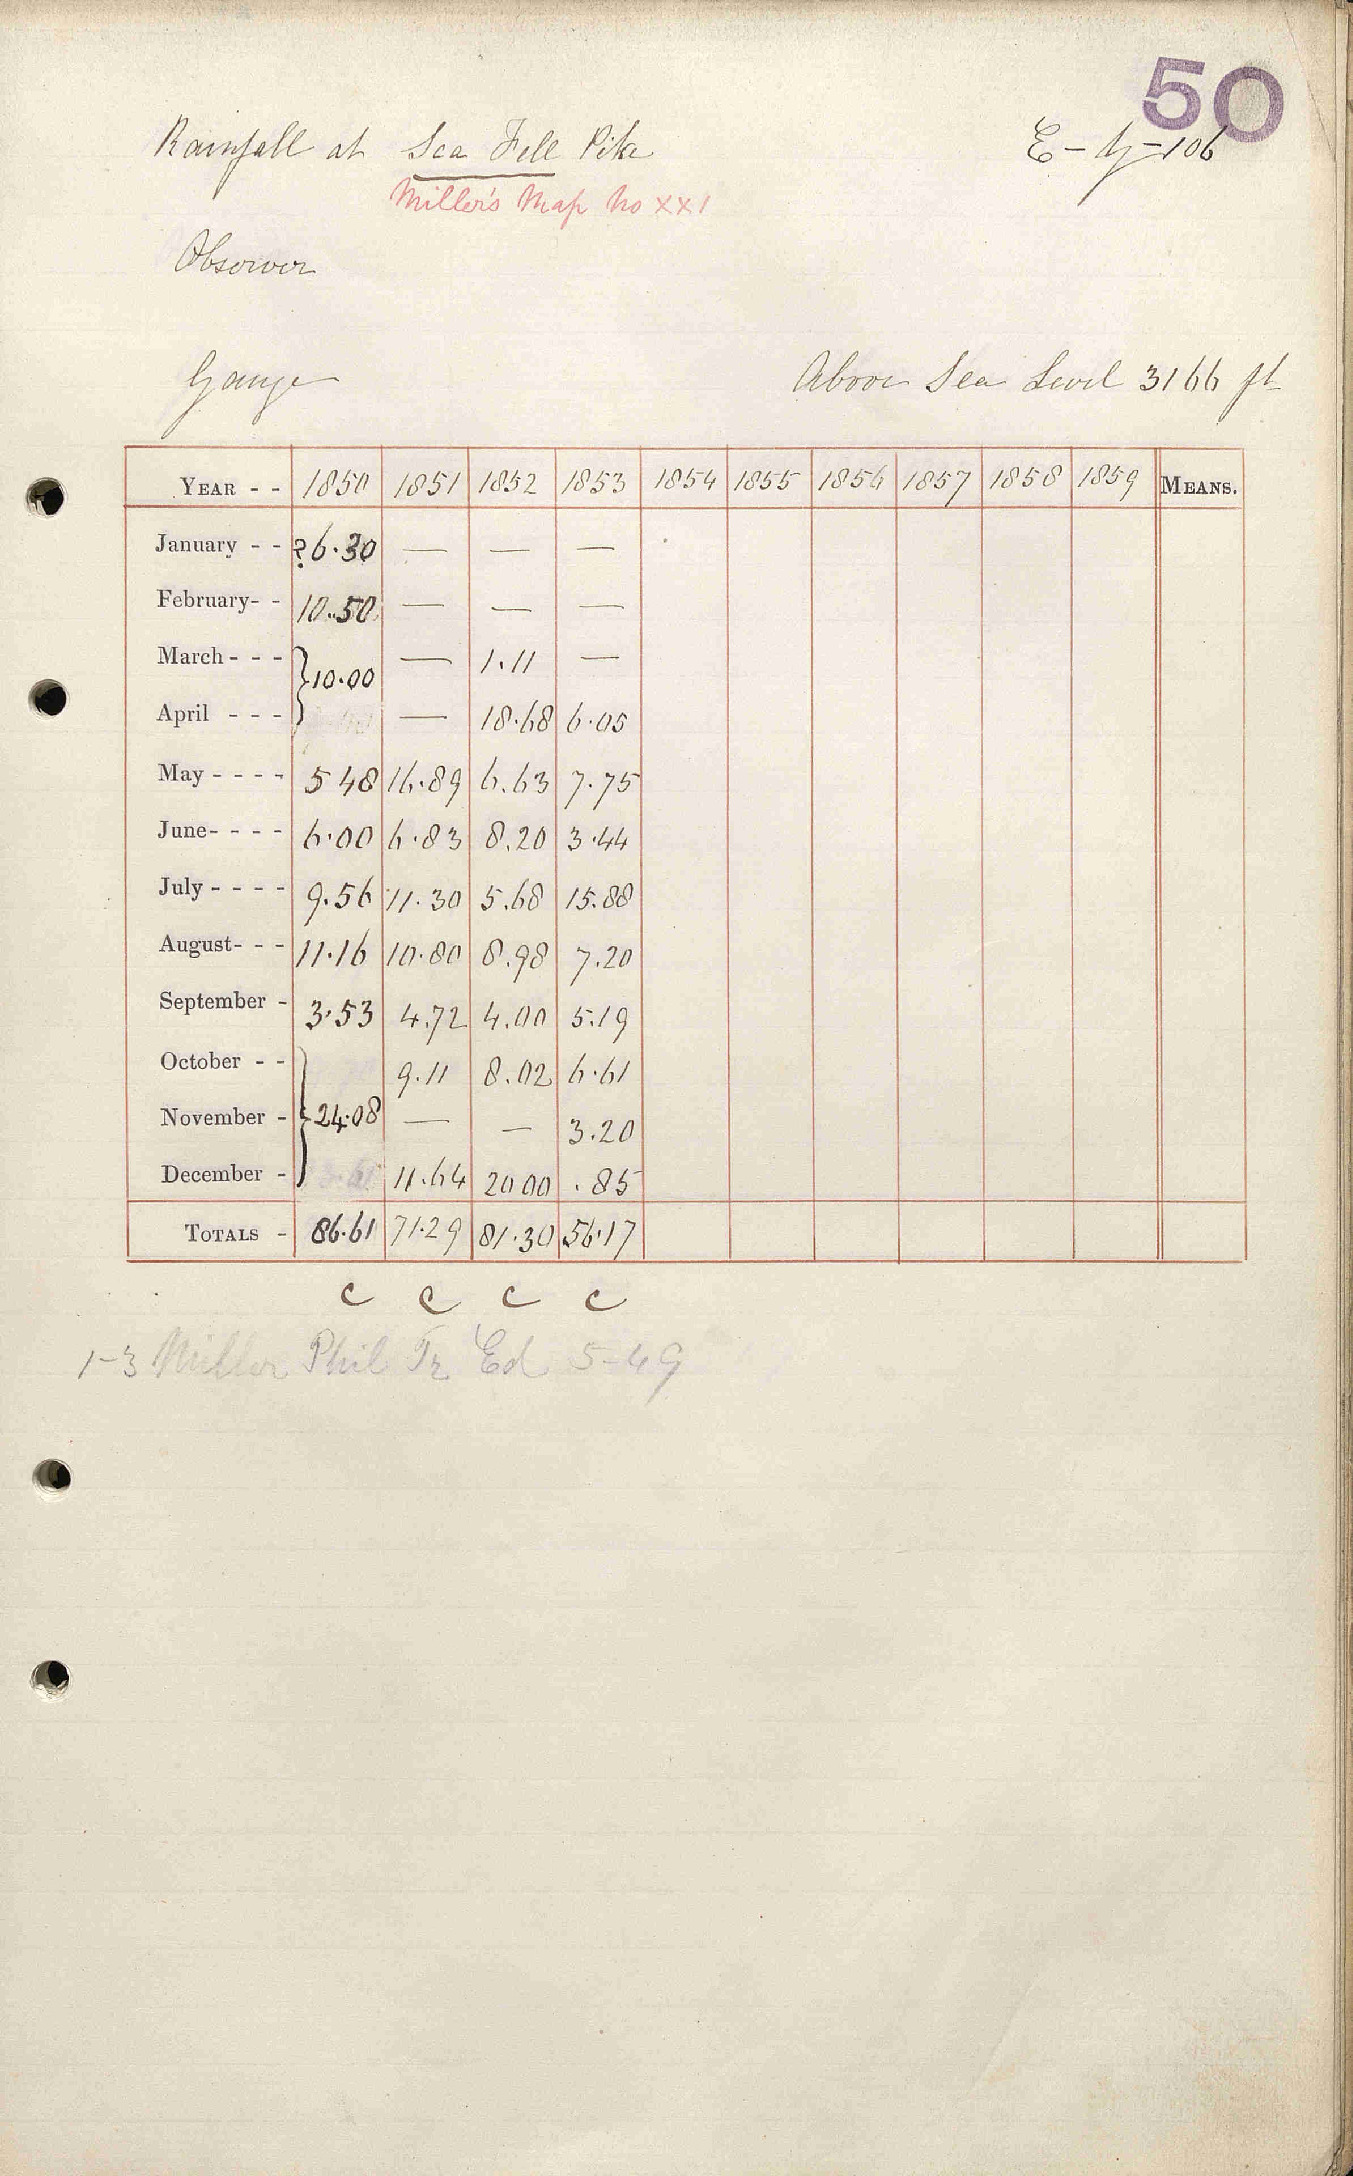 50
Rainfall at Sea Fell Pike E-y-106
Miller's Map No XX1
Observer
Gauge Above Sea Level 3166 ft
YEAR - - 1850 1851 1852 1853 1854 1855 1856 1857 1858 1859 MEANS.
January - - ?6.30 — — —
February- - 10.50 — — —
March - - - } 10.00 — 1.11 —
April - - - — 18.68 6.05
May - - - - 5 48 16.89 6.63 7.75
June- - - - 6.00 6.83 8.20 3.44
July - - - - 9.56 11.30 5.68 15.88
August- - - 11.16 10.80 8.98 7.20
September - 3.53 4.72 4.00 5.19
October - - 9.11 8.02 6.61
November - } 24.08 — — 3.20
December - 11.64 20 00 .85
TOTALS - 86.61 71.29 81.30 56.17
C C C C
1-3 Miller Phil Tr Ed 5-49